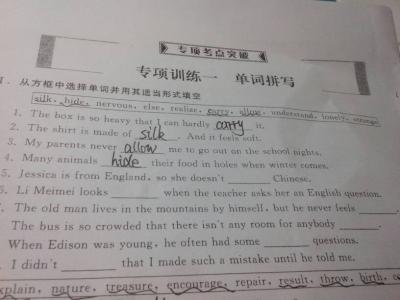 专项考点突破
专项训练一 单词拼写
Ⅰ. 从方框中选择单词并用其适当形式填空
silk, hide, nervous, else, realize, carry, allow, understand, lonely, strange
1. The box is so heavy that I can hardly carry it.
2. The shirt is made of silk. And it feels soft.
3. My parents never allow me to go out on the school nights.
4. Many animals hide their food in holes when winter comes.
5. Jessica is from England, so she doesn't ______ Chinese.
6. Li Meimei looks ______ when the teacher asks her an English question.
The old man lives in the mountains by himself, but he never feels ______.
The bus is so crowded that there isn't any room for anybody ______.
When Edison was young, he often had some ______ questions.
I didn't ______ that I made such a mistake until he told me.
explain, nature, treasure, encourage, repair, result, throw, birth,